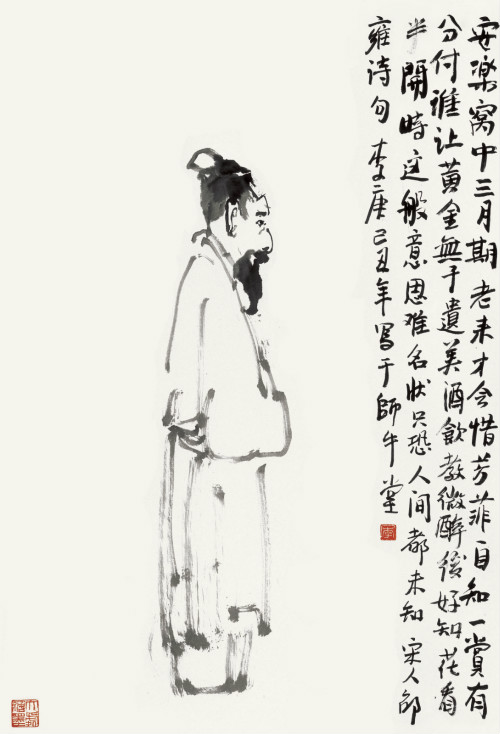 安樂窝中三月期老来才会惜芳菲自知一賞有
分付谁让黄金無孑遺美酒飲教微醉後好知花看
半開時这般意思难名状只恐人间都未知 宋人邵
雍诗句 李庚己丑年写于師牛堂